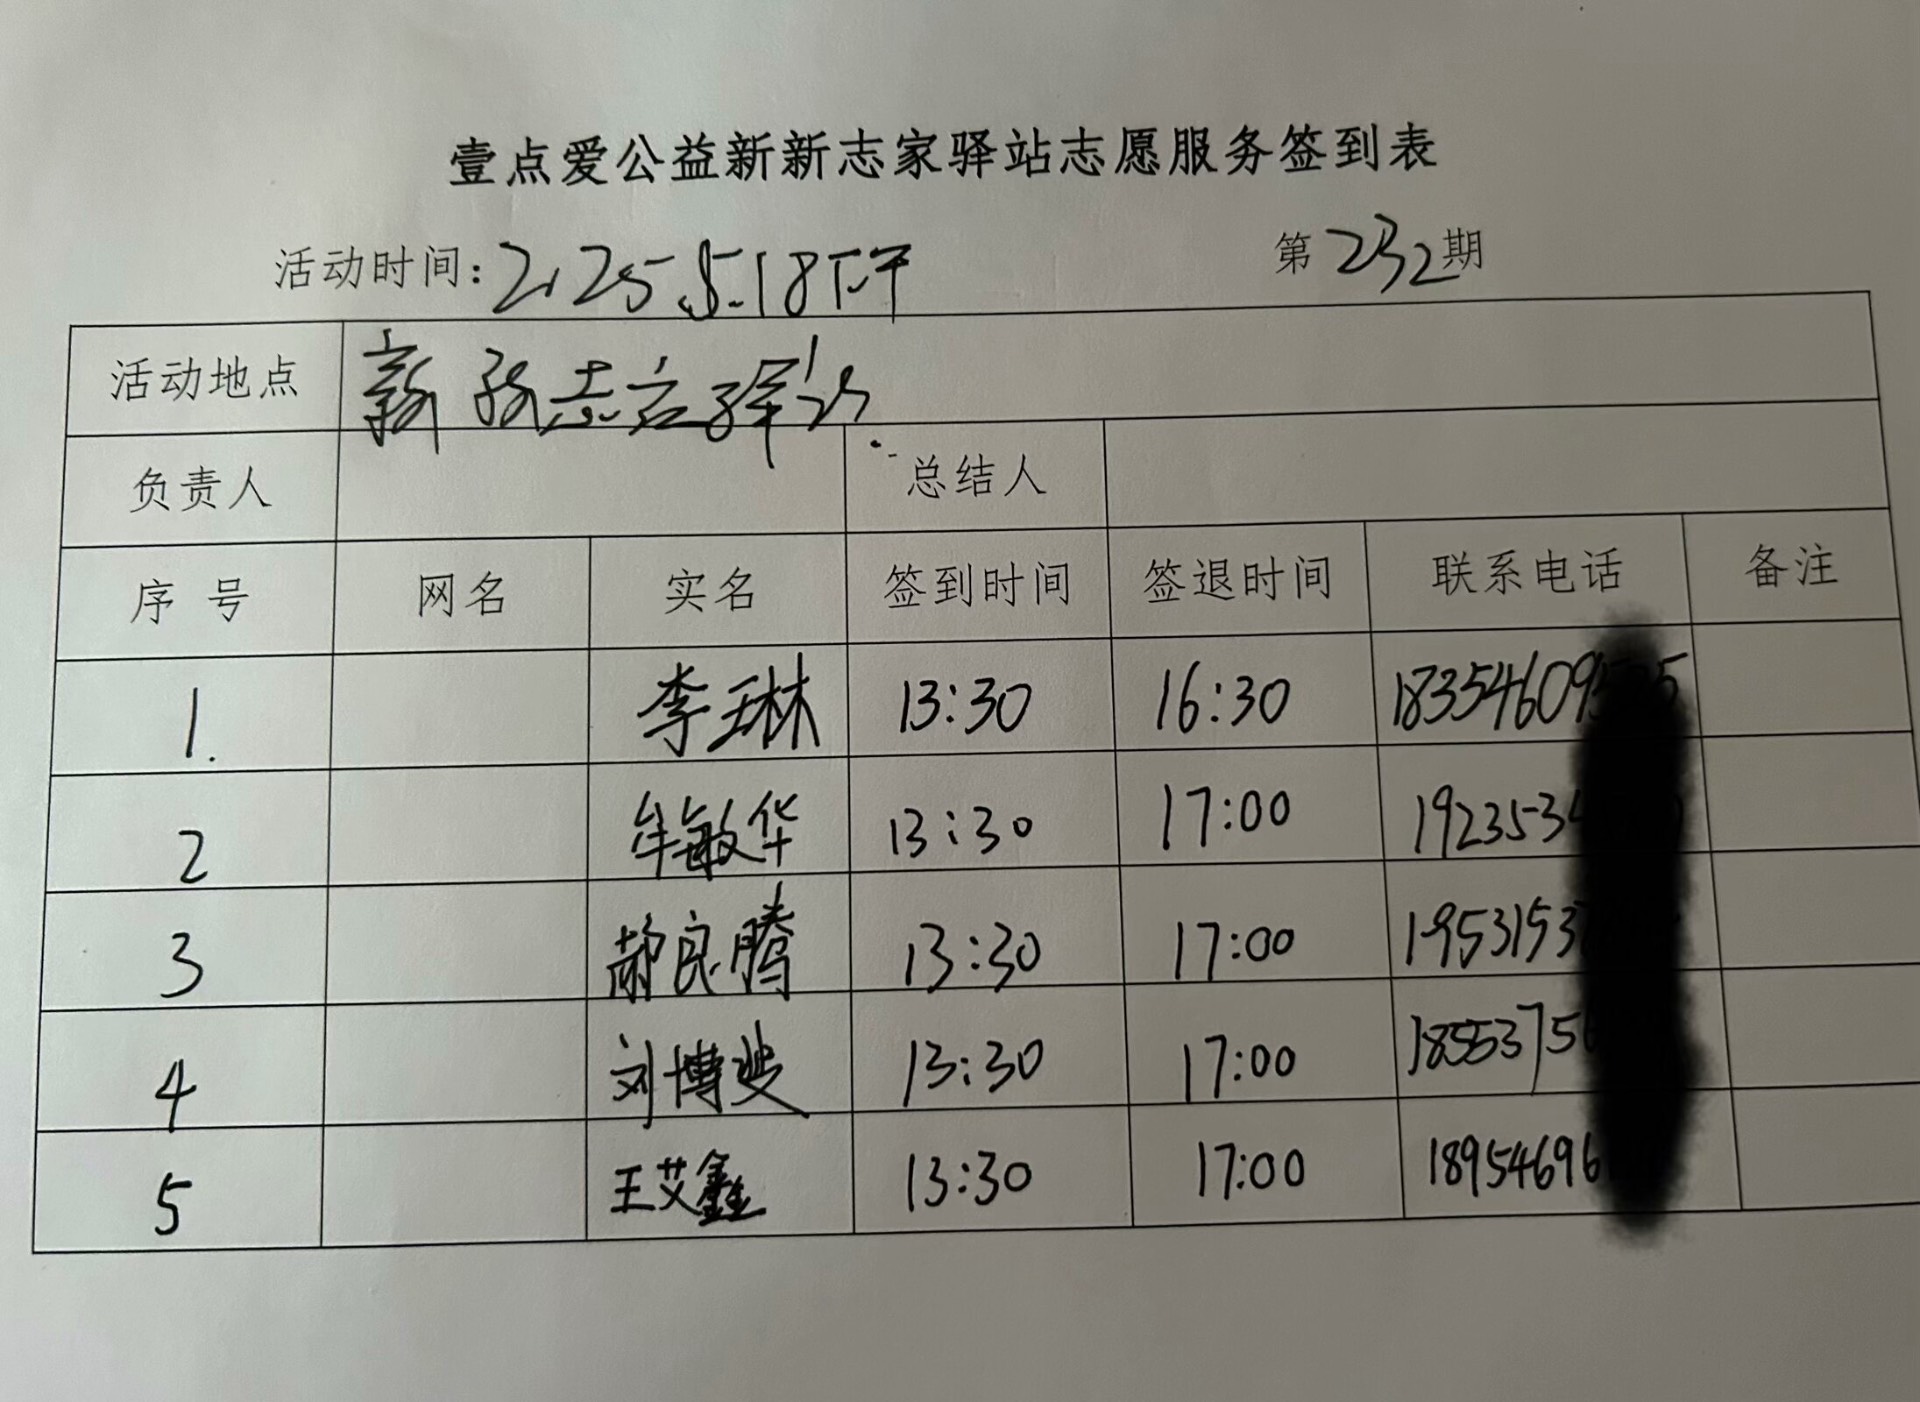 壹点爱公益新新志家驿站志愿服务签到表
活动时间：2025.5.18下午 第232期
活动地点 新新志家驿站
负责人 总结人
序号 网名 实名 签到时间 签退时间 联系电话 备注
1. 李琳 13:30 16:30 18354609
2 牟敏华 13:30 17:00 1923534
3 胡良腾 13:30 17:00 19531537
4 刘博斐 13:30 17:00 18553756
5 王艾鑫 13:30 17:00 18954696